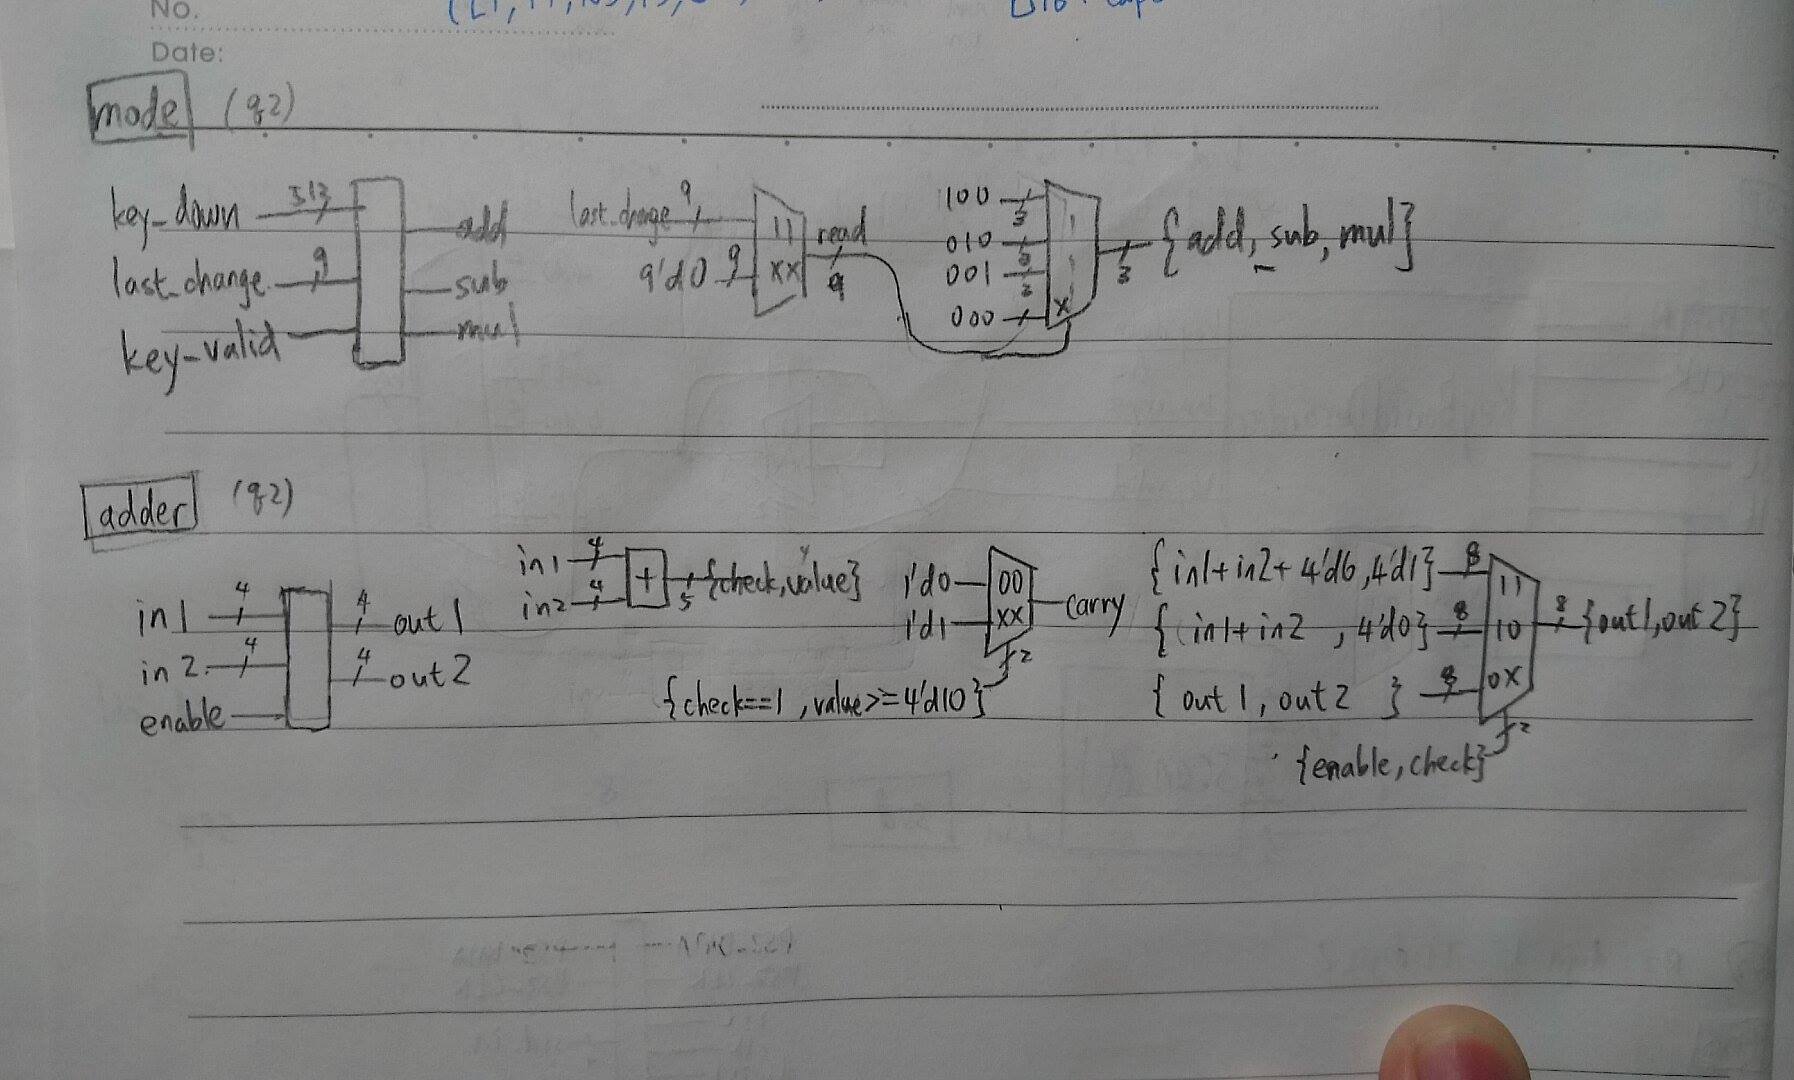 No.
Date:
mode (q2)
key_down 513
last_change 9
key_valid
add
sub
mul
last_change 9
9'd0 9
11
xx
read
9
100 3
010 3
001 3
000
1
1
X
3 {add, sub, mul}
adder (q2)
in1 4
in2 4
enable
4 out1
4 out2
in1 4
in2 4
+
5 {check, value}
4
1'd0
1'd1
00
XX
carry
2
{check==1, value>=4'd10}
{in1+in2+4'd6, 4'd1} 8
{in1+in2, 4'd0} 8
{out1, out2} 8
11
10
0X
8 {out1, out2}
2
{enable, check}